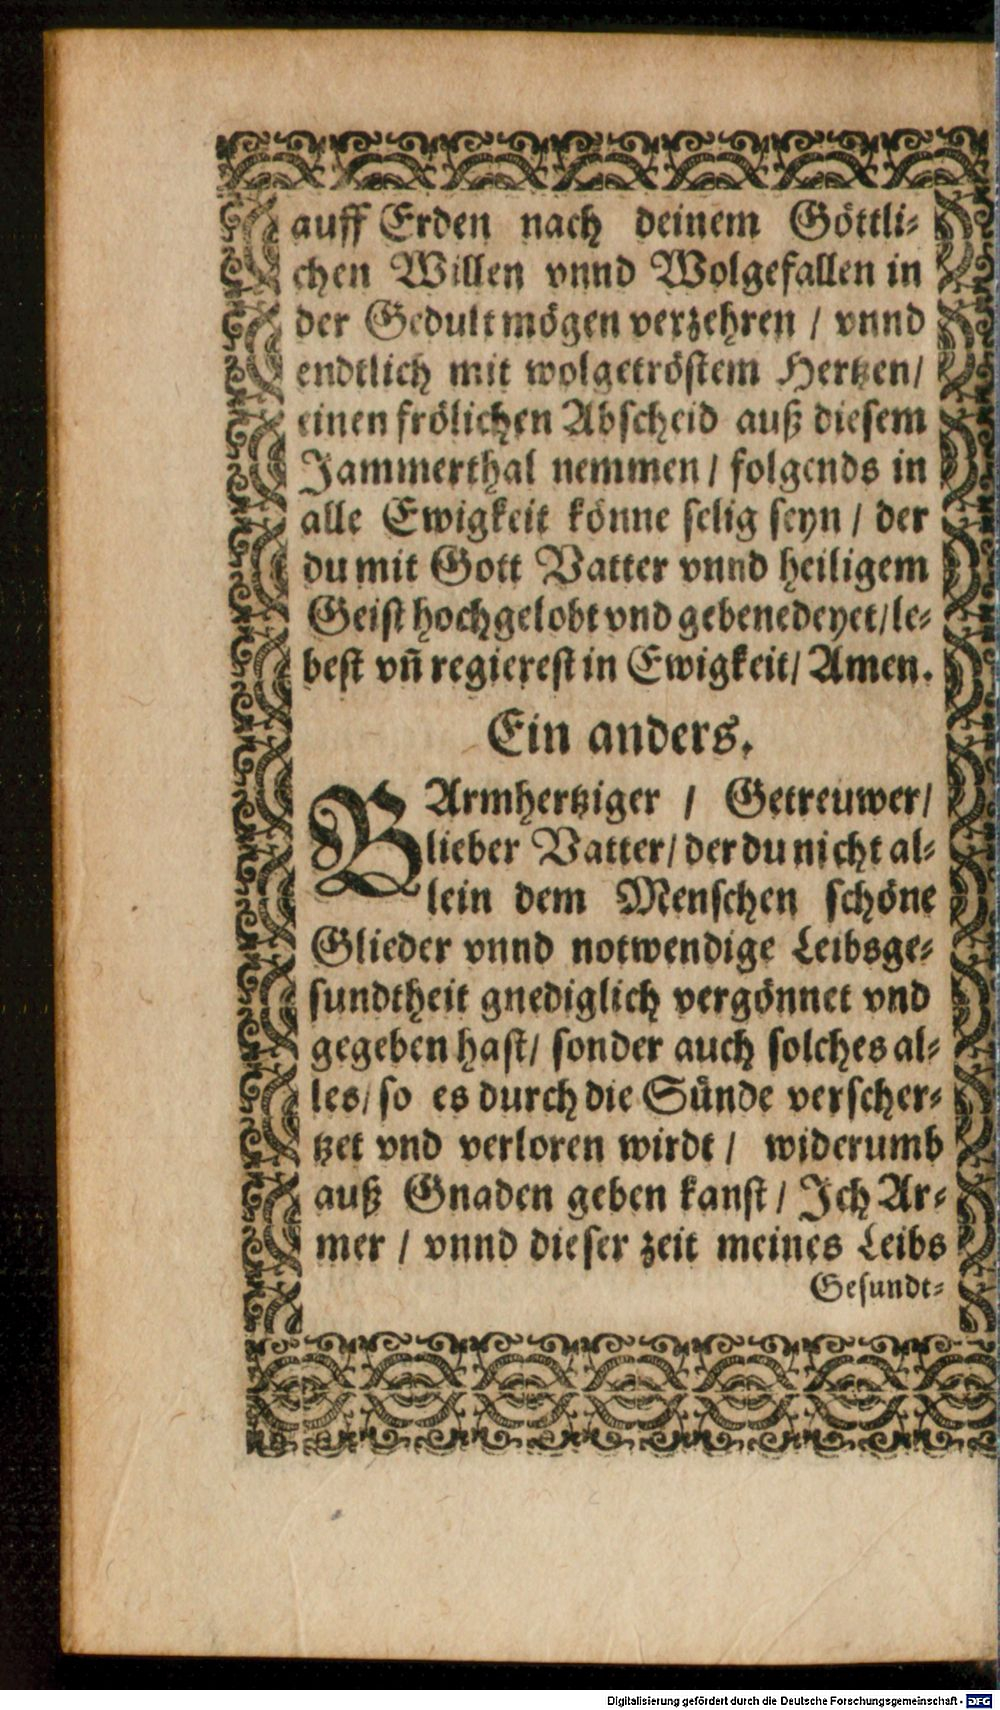 auff Erden nach deinem Göttli-
chen Willen vnnd Wolgefallen in
der Gedult mögen verzehren / vnnd
endtlich mit wolgetröstem Hertzen /
einen frölichen Abscheid auß diesem
Jammerthal nemmen / folgends in
alle Ewigkeit könne selig seyn / der
du mit Gott Vatter vnnd heiligem
Geist hochgelobt vnd gebenedeyet / le-
best vñ regierest in Ewigkeit / Amen.
Ein anders.
BArmhertziger / Getreuwer /
lieber Vatter / der du nicht al-
lein dem Menschen schöne
Glieder vnnd notwendige Leibsge-
sundtheit gnediglich vergönnet vnd
gegeben hast / sonder auch solches al-
les / so es durch die Sünde verscher-
tzet vnd verloren wirdt / widerumb
auß Gnaden geben kanst / Ich Ar-
mer / vnnd dieser zeit meines Leibs
Gesundt-
Digitalisierung gefördert durch die Deutsche Forschungsgemeinschaft - DFG